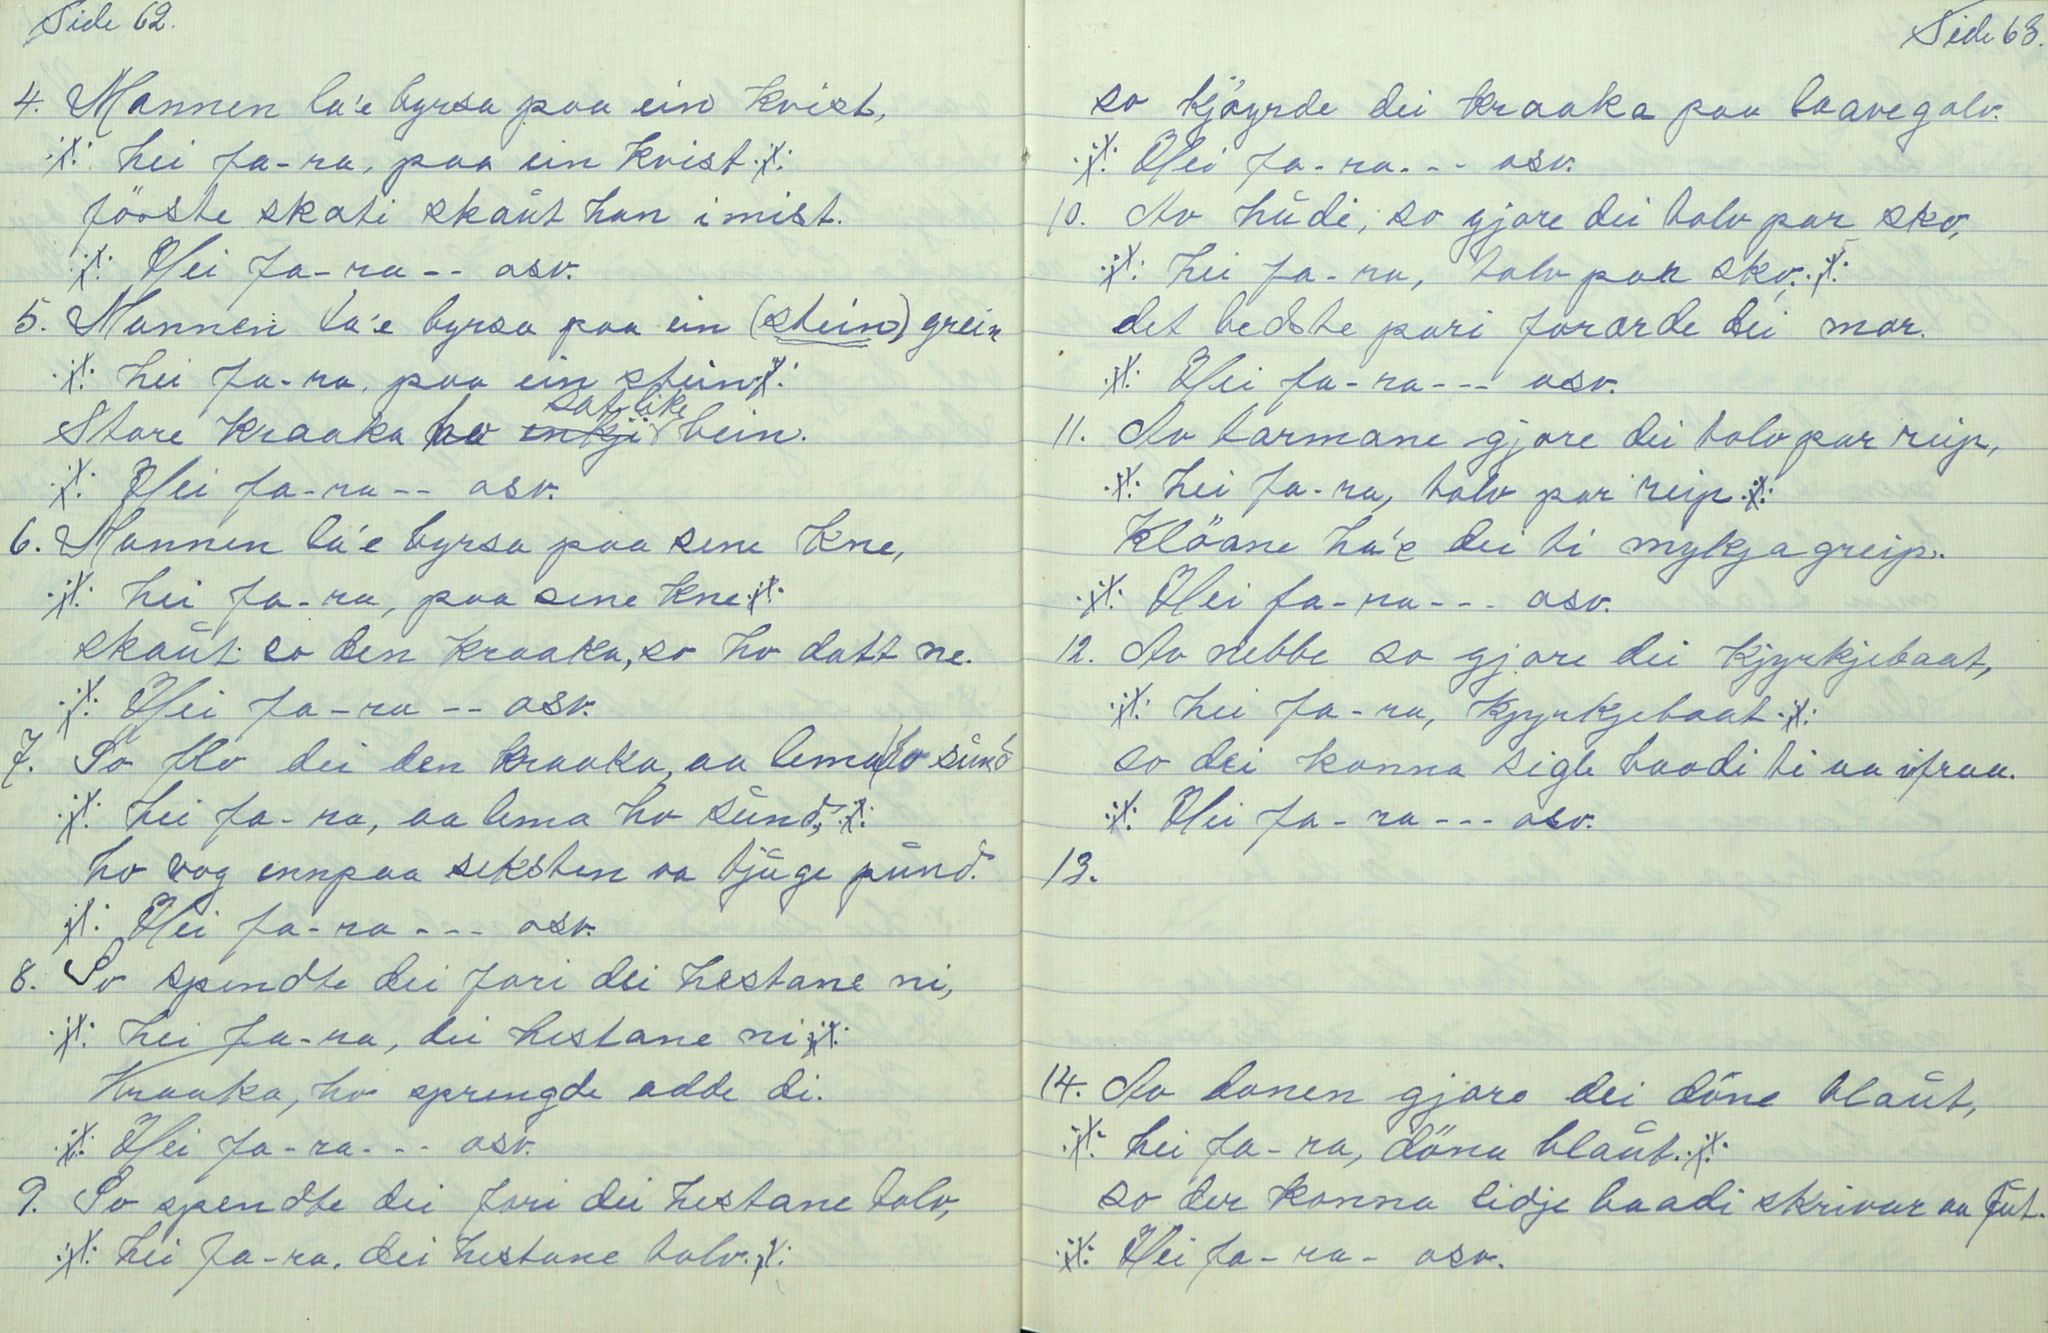 Side 62.
4. Mannen la'e byrsa paa ein kvist,
·/: hei fa-ra, paa ein kvist ·/:
fööste skoti skaût han i mist.
·/: Hei fa-ra -- osv.
5. Mannen la'e byrsa paa ein (stein) grein
·/: hei fa-ra, paa ein stein ·/:
Store kraaka ho enkji sat like bein.
·/: Hei fa-ra -- osv.
6. Mannen la'e byrsa paa sene kne,
·/: hei fa-ra, paa sene kne ·/:
skaût so den kraaka, so ho datt ne.
·/: Hei fa-ra -- osv.
7. So flo dei den kraaka, aa lema ho sûnd
·/: hei fa-ra, aa lema ho sûnd, ·/:
ho vog ennpaa seksten aa tjûge pûnd.
·/: Hei fa-ra --- osv.
8. So spendte dei fori dei hestane ni,
·/: hei fa-ra, dei hestane ni ·/:
Kraaka, ho sprengde adde di.
·/: Hei fa-ra --- osv.
9. So spendte dei fori dei hestane tolv,
·/: hei fa-ra, dei hestane tolv. ·/:
Side 63.
so kjöyrde dei kraaka paa laavegolv.
·/: Hei fa-ra. -- osv.
10. Av hûdi, so gjore dei tolv par sko,
·/: hei fa-ra, tolv par sko, ·/:
det bedste pari forærde dei mor.
·/: Hei fa-ra --- osv.
11. Av tarmane gjore dei tolv par reip,
·/: hei fa-ra, tolv par reip ·/:
Klöane ha'e dei ti mykjagreip.
·/: Hei fa-ra --- osv.
12. Av nebbe so gjore dei kjyrkjebaat,
·/: hei fa-ra, kjyrkjebaat ·/:
so dei konna sigle baadi ti aa ifraa.
·/: Hei fa-ra --- osv.
13.
14. Av donen gjore dei döne blaût,
·/: hei fa-ra, döna blaût. ·/:
so der konna lidje baadi skrivar aa fût.
·/: Hei fa-ra - osv.